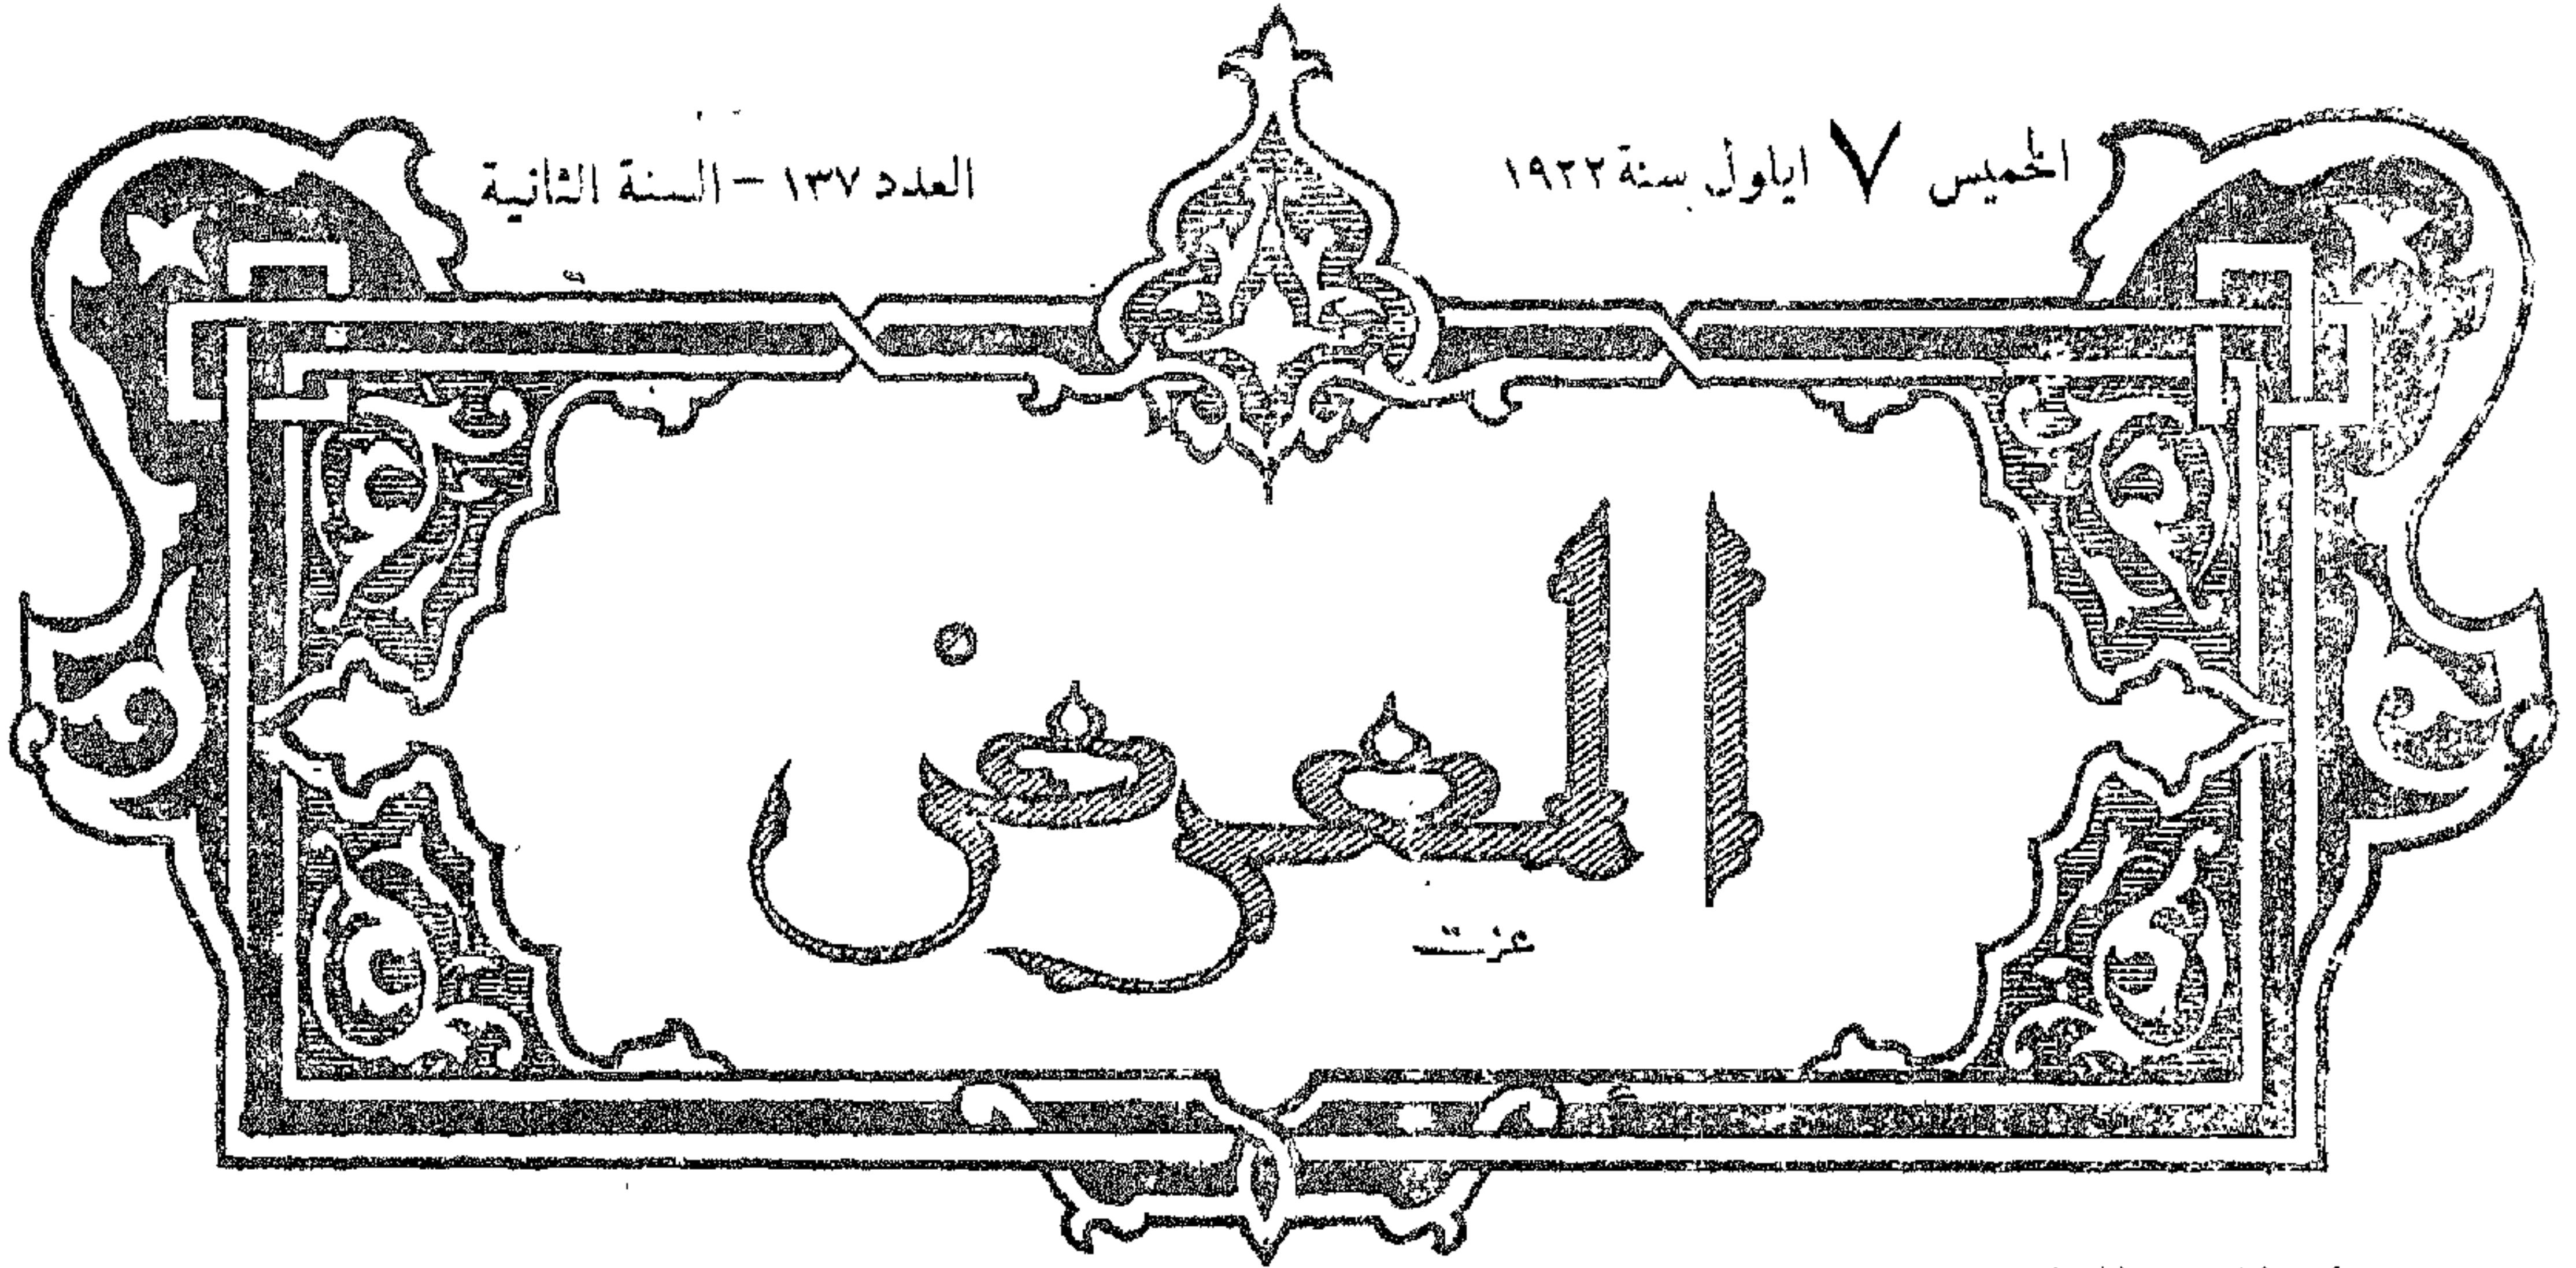 الخميس ٧ ايلول سنة ١٩٢٢
العدد ١٣٧ – السنة الثانية
المعرض
عزت